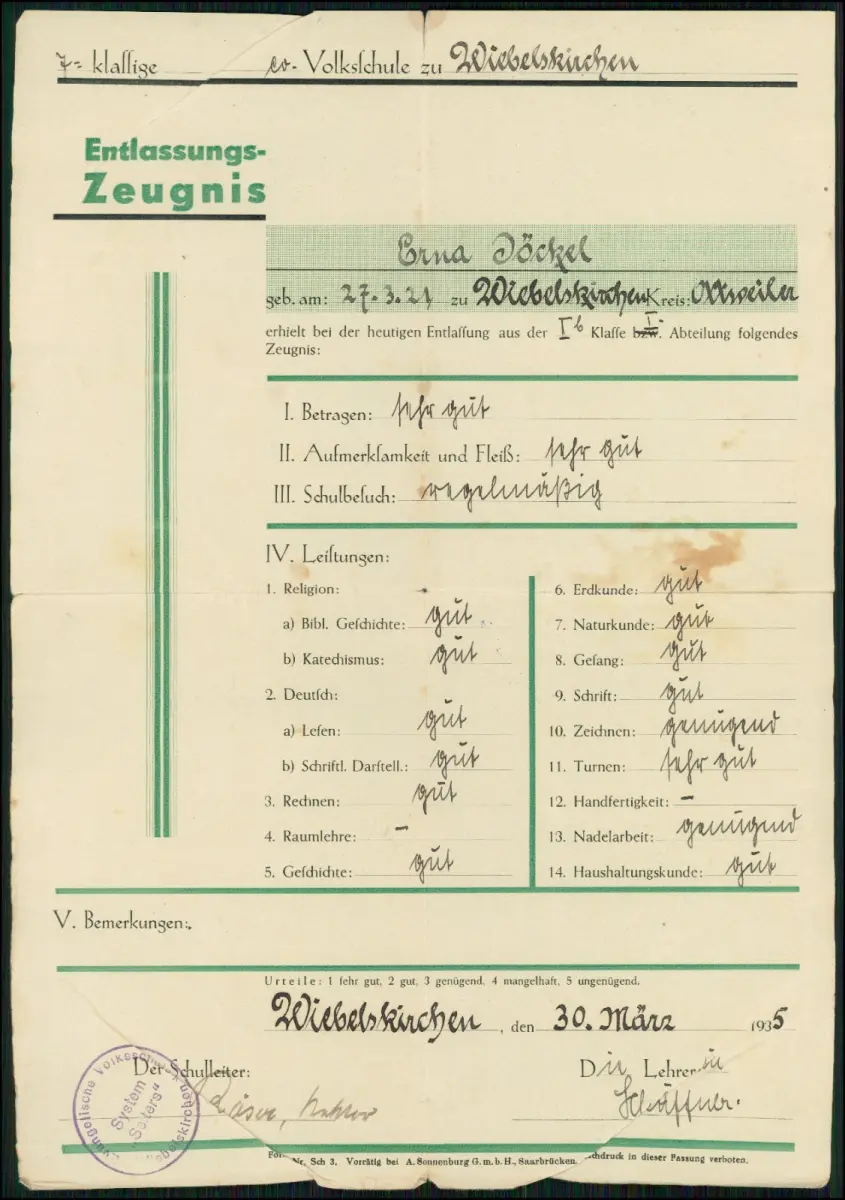 7- klassige ev- Volksschule zu Wiebelskirchen
Entlassungs-
Zeugnis
Erna Jöckel
geb. am: 27.3.21 zu Wiebelskirchen Kreis: Ottweiler
erhielt bei der heutigen Entlassung aus der I b Klasse bzw. I. Abteilung folgendes
Zeugnis:
I. Betragen: sehr gut
II. Aufmerksamkeit und Fleiß: sehr gut
III. Schulbesuch: regelmäßig
IV. Leistungen:
1. Religion:
a) Bibl. Geschichte: gut
b) Katechismus: gut
2. Deutsch:
a) Lesen: gut
b) Schriftl. Darstell.: gut
3. Rechnen: gut
4. Raumlehre: –
5. Geschichte: gut
6. Erdkunde: gut
7. Naturkunde: gut
8. Gesang: gut
9. Schrift: gut
10. Zeichnen: genügend
11. Turnen: sehr gut
12. Handfertigkeit: –
13. Nadelarbeit: genügend
14. Haushaltungskunde: gut
V. Bemerkungen:
Urteile: 1 sehr gut, 2 gut, 3 genügend, 4 mangelhaft, 5 ungenügend.
Wiebelskirchen, den 30. März 1935
Der Schulleiter:
Rektor
Die Lehrerin
Schäffner.
Evangelische Volksschule
System
"Seiters"
Nr. Sch 3. Vorrätig bei A. Sonnenburg G.m.b.H., Saarbrücken. chdruck in dieser Fassung verboten.